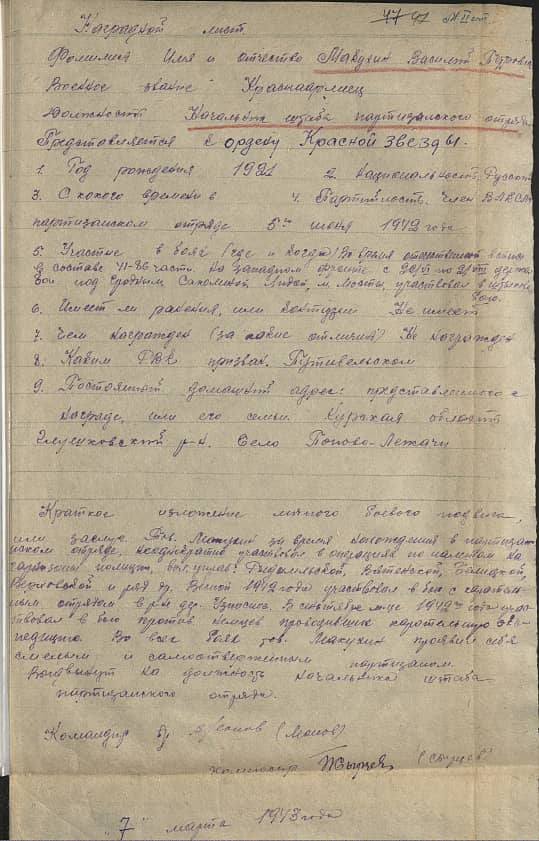 Наградной лист
Фамилия Имя и отчество Макухин Василий
Военное звание Красноармеец
Должность Начальник штаба партизанского отряда
Представляется к ордену Красной Звезды.
1. Год рождения 1921 2. Национальность Русский
3. С какого времени в 4. Партийность. Член ВЛКСМ
партизанском отряде 5го июня 1942 года
5. Участие в боях (где и когда) Во время отечественной войны
в составе части. На Западном фронте с по держал
бои под Гродным, Лидой, м. Мосты, участвовал в
бою.
6. Имеет ли ранения, или контузии Не имеет
7. Чем награжден (за какие отличия) Не награжден
8. Каким РВК призван. Путивельском
9. Постоянный домашний адрес: представляемого к
награде, или его семьи. Курская область
Глушковский р-н. Село Попово-Лежачи
Краткое изложение личного боевого подвига,
или заслуг. Тов. Макухин за время нахождения в партизан
ском отряде, неоднократно участвовал в операциях по налетам на
гарнизоны полиции,
и ряд др. 1942 года участвовал в бою с каратель
ным отрядом в р-не дер. В сентябре м-це 1942го года участ
вовал в бою против немцев проводивших карательную экс
педицию. Во всех боях тов. Макухин проявил себя
смелым и самоотверженным партизаном.
Выдвинут на должность начальника штаба
партизанского отряда.
Командир (Леонов)
комиссар (Сырцев)
"7" марта 1943 года